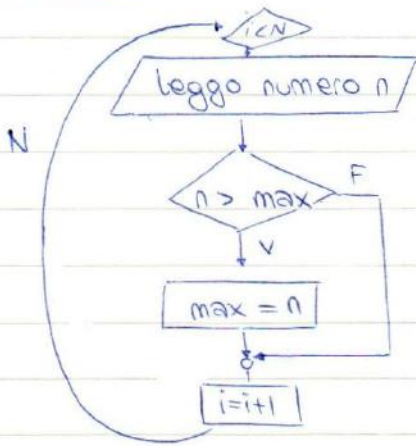 i<N
leggo numero n
N
n > max
F
V
max = n
i=i+1